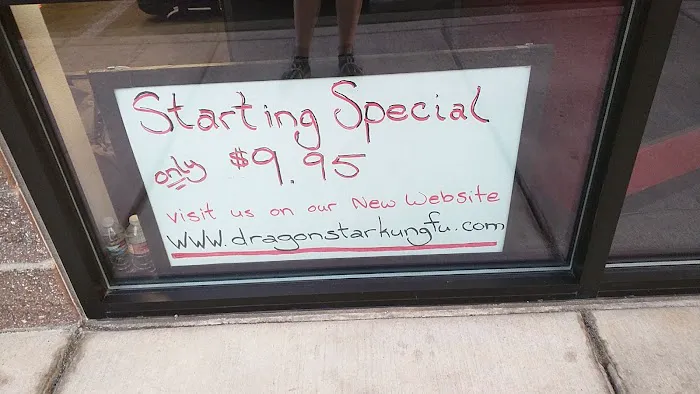 Starting Special
only $9.95
visit us on our New Website
WWW.dragonstarkungfu.com